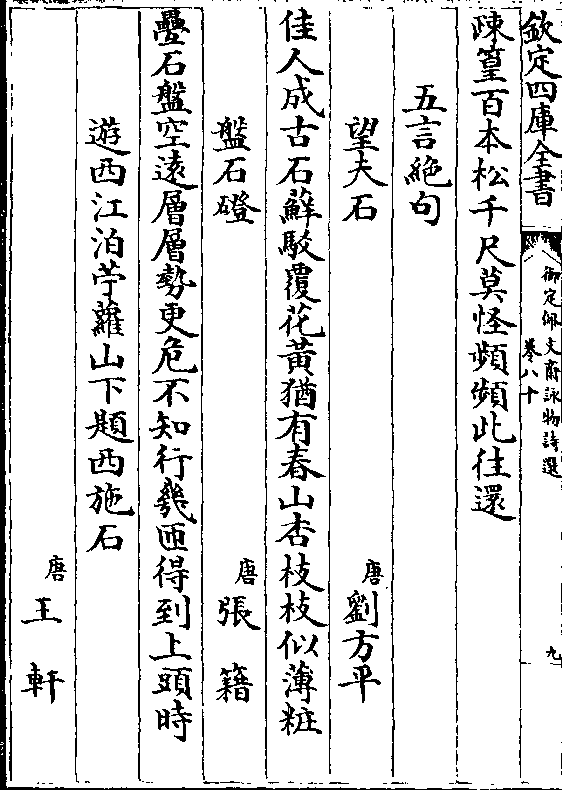 欽定四庫全書
御定佩文齋詠物詩選
卷八十
九
疎篁百本松千尺莫怪頻頻此往還
五言絶句
望夫石
唐劉方平
佳人成古石蘚駁覆花黃猶有春山杏枝枝似薄粧
盤石磴
唐張籍
疊石盤空遠層層勢更危不知行幾匝得到上頭時
遊西江泊苧蘿山下題西施石
唐王軒